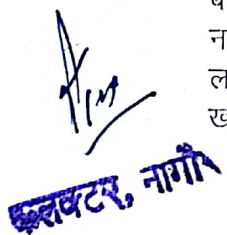 ब
न
ल
ख
कलक्टर, नागौ